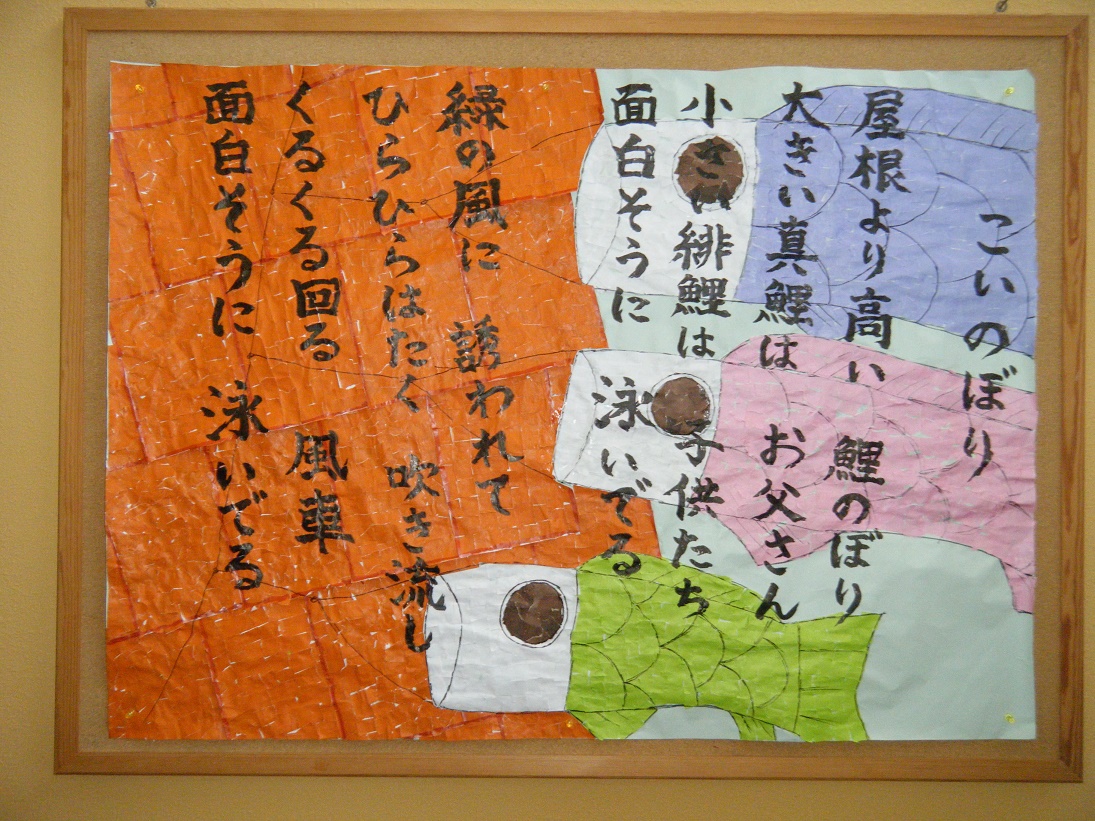 こいのぼり
屋根より高い 鯉のぼり
大きい真鯉は お父さん
小さい緋鯉は 子供たち
面白そうに 泳いでる
緑の風に 誘われて
ひらひらはたく 吹き流し
くるくる回る 風車
面白そうに 泳いでる